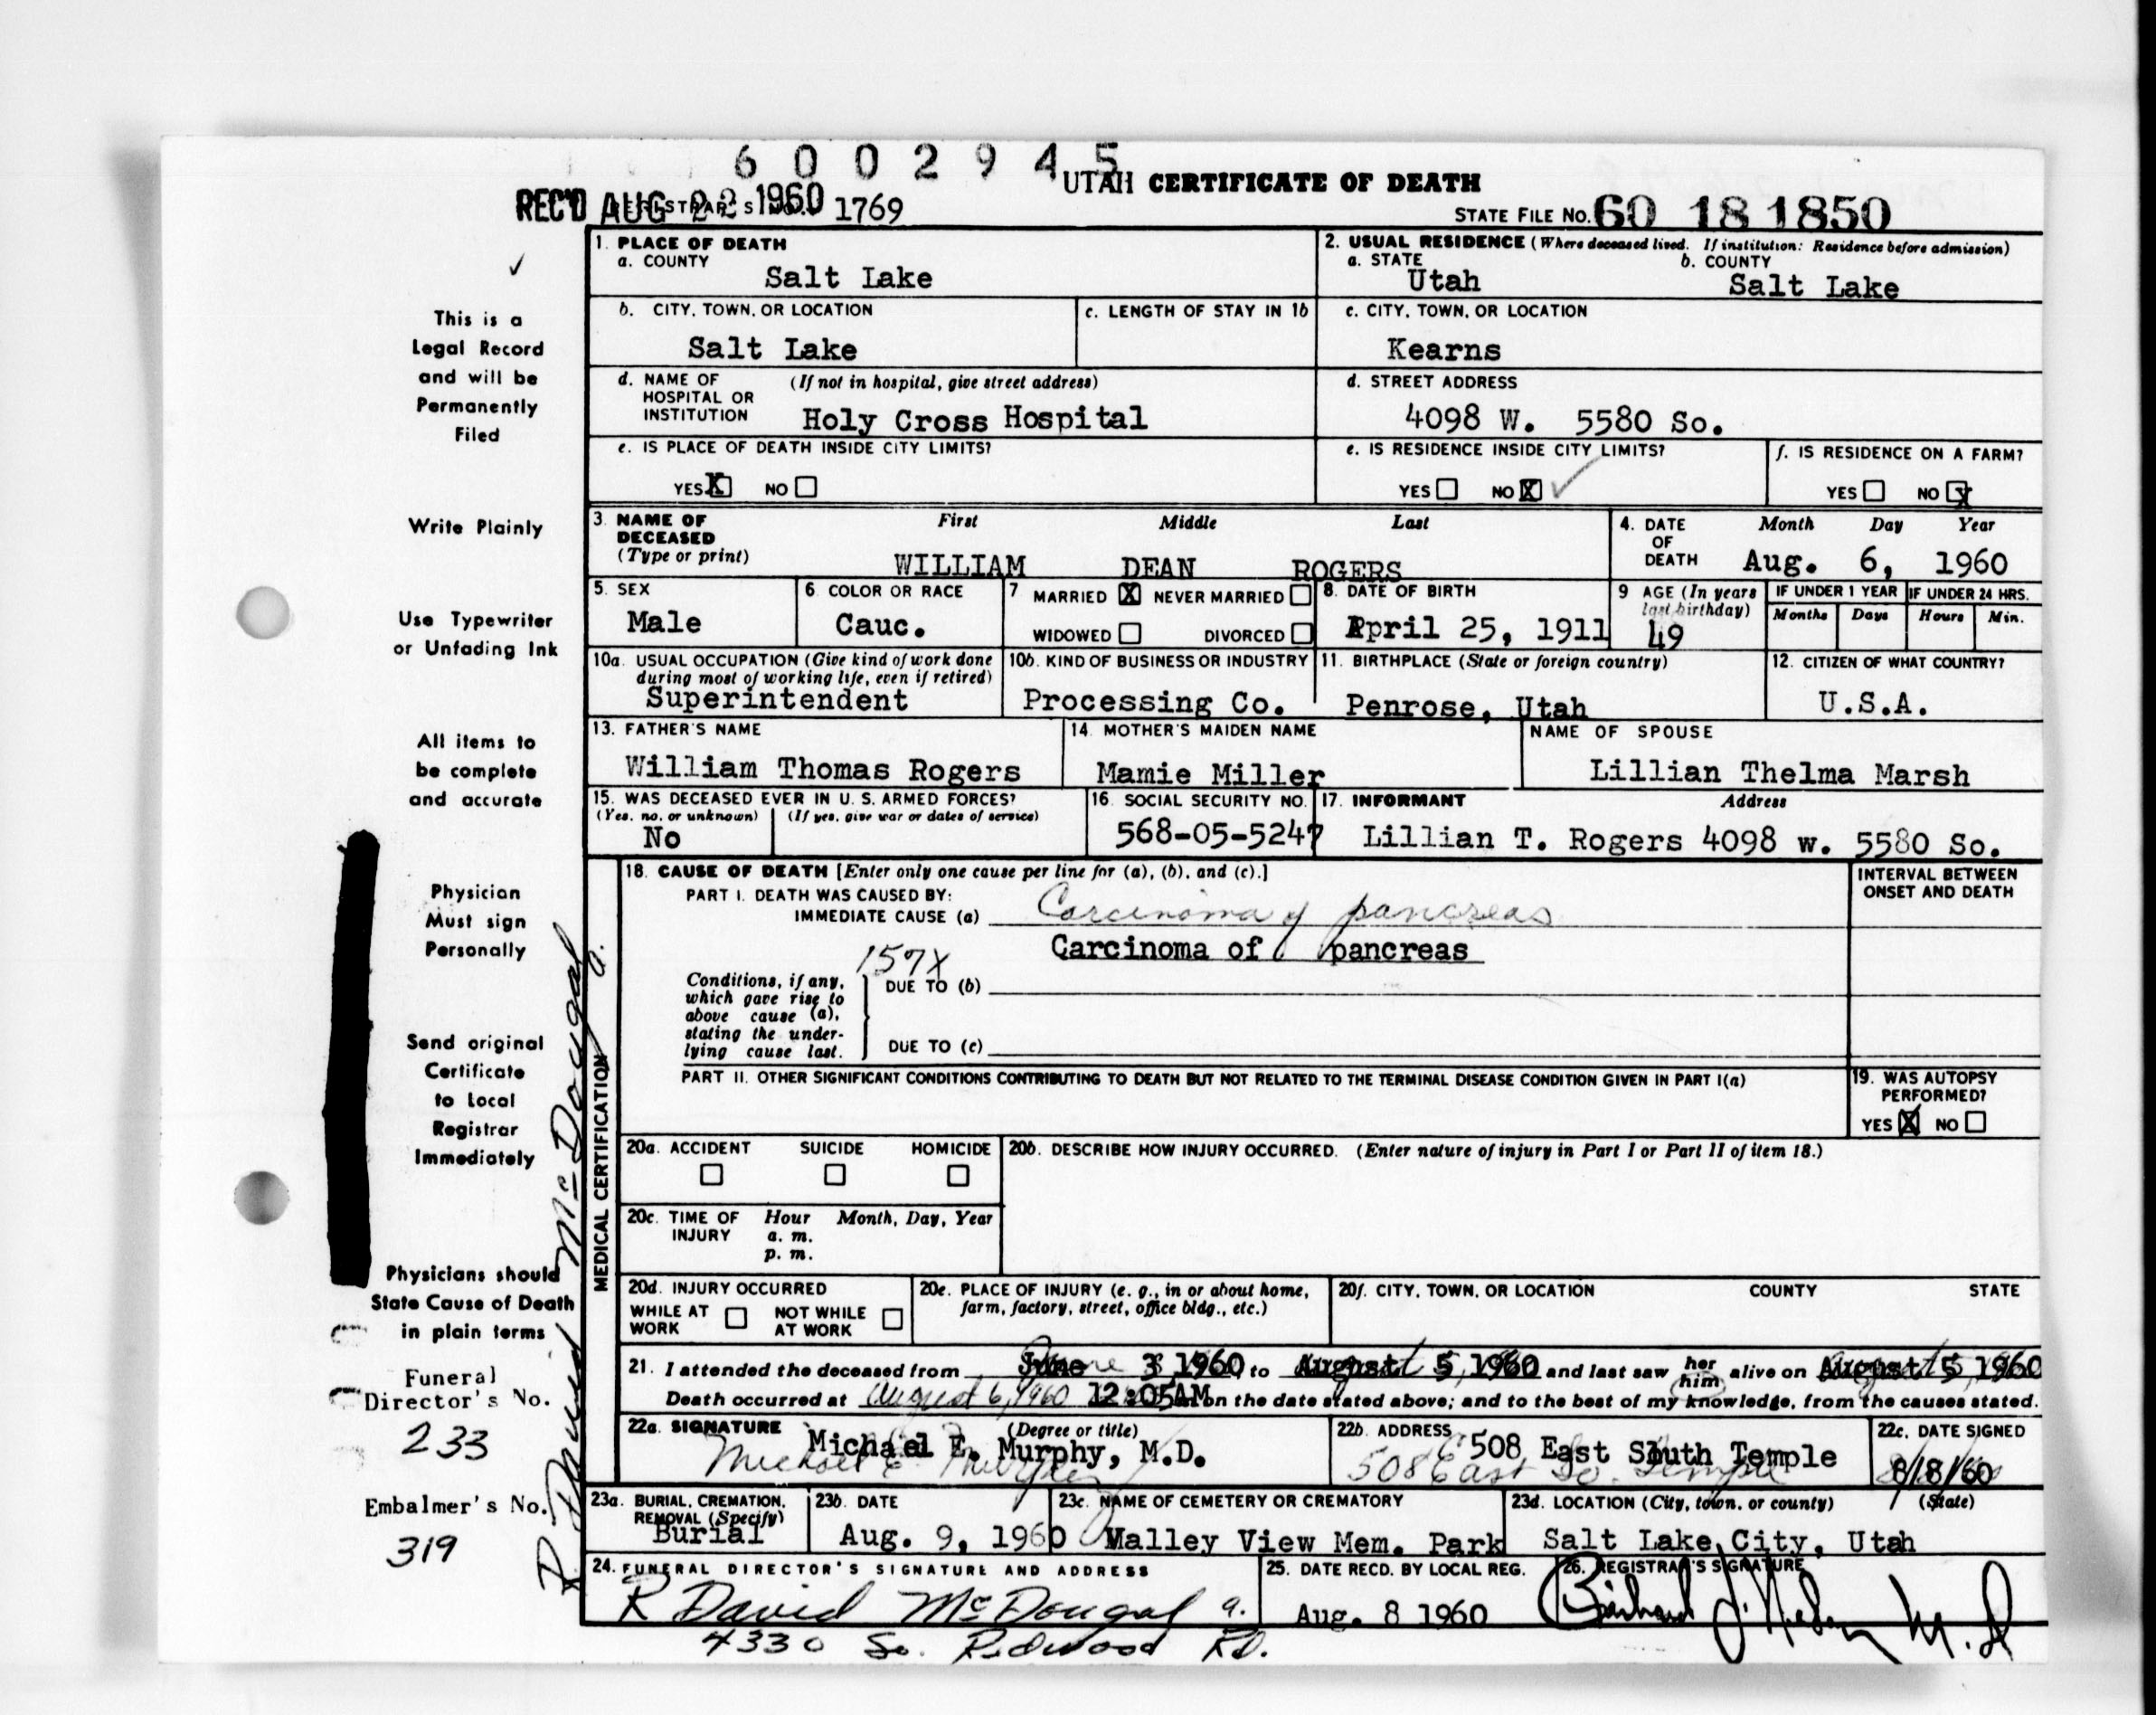 6 0 0 2 9 4 5
UTAH CERTIFICATE OF DEATH
REC'D AUG 22 1960 1769
STATE FILE NO. 60 18 1850
1. PLACE OF DEATH
a. COUNTY
Salt Lake
2. USUAL RESIDENCE (Where deceased lived. If institution: Residence before admission)
a. STATE b. COUNTY
Utah Salt Lake
b. CITY, TOWN, OR LOCATION
Salt Lake
c. LENGTH OF STAY IN 1b
c. CITY, TOWN, OR LOCATION
Kearns
d. NAME OF (If not in hospital, give street address)
HOSPITAL OR
INSTITUTION Holy Cross Hospital
d. STREET ADDRESS
4098 W. 5580 So.
e. IS PLACE OF DEATH INSIDE CITY LIMITS?
YES X NO
e. IS RESIDENCE INSIDE CITY LIMITS?
YES NO X
f. IS RESIDENCE ON A FARM?
YES NO X
3. NAME OF First Middle Last
DECEASED
(Type or print) WILLIAM DEAN ROGERS
4. DATE Month Day Year
OF
DEATH Aug. 6, 1960
5. SEX
Male
6. COLOR OR RACE
Cauc.
7 MARRIED X NEVER MARRIED
WIDOWED DIVORCED
8. DATE OF BIRTH
April 25, 1911
9 AGE (In years
last birthday)
49
IF UNDER 1 YEAR IF UNDER 24 HRS.
Months Days Hours Min.
10a. USUAL OCCUPATION (Give kind of work done
during most of working life, even if retired)
Superintendent
10b. KIND OF BUSINESS OR INDUSTRY
Processing Co.
11. BIRTHPLACE (State or foreign country)
Penrose, Utah
12. CITIZEN OF WHAT COUNTRY?
U.S.A.
13. FATHER'S NAME
William Thomas Rogers
14. MOTHER'S MAIDEN NAME
Mamie Miller
NAME OF SPOUSE
Lillian Thelma Marsh
15. WAS DECEASED EVER IN U. S. ARMED FORCES?
(Yes, no, or unknown) (If yes, give war or dates of service)
No
16. SOCIAL SECURITY NO.
568-05-5247
17. INFORMANT Address
Lillian T. Rogers 4098 w. 5580 So.
18. CAUSE OF DEATH [Enter only one cause per line for (a), (b), and (c).]
PART I. DEATH WAS CAUSED BY:
IMMEDIATE CAUSE (a) Carcinoma of pancreas
Carcinoma of pancreas
157X
INTERVAL BETWEEN
ONSET AND DEATH
Conditions, if any,
which gave rise to
above cause (a),
stating the under-
lying cause last.
DUE TO (b)
DUE TO (c)
PART II. OTHER SIGNIFICANT CONDITIONS CONTRIBUTING TO DEATH BUT NOT RELATED TO THE TERMINAL DISEASE CONDITION GIVEN IN PART I(a)
19. WAS AUTOPSY
PERFORMED?
YES X NO
MEDICAL CERTIFICATION
20a. ACCIDENT SUICIDE HOMICIDE
20b. DESCRIBE HOW INJURY OCCURRED. (Enter nature of injury in Part I or Part II of item 18.)
20c. TIME OF Hour Month, Day, Year
INJURY a. m.
p. m.
20d. INJURY OCCURRED
WHILE AT NOT WHILE
WORK AT WORK
20e. PLACE OF INJURY (e. g., in or about home,
farm, factory, street, office bldg., etc.)
20f. CITY, TOWN, OR LOCATION COUNTY STATE
21. I attended the deceased from June 3 1960, to August 5 1960 and last saw her him alive on August 5 1960
Death occurred at August 6, 1960 12:05AM on the date stated above; and to the best of my knowledge, from the causes stated.
22a. SIGNATURE (Degree or title)
Michael E. Murphy, M.D.
Michael E. Murphy
22b. ADDRESS
508 East South Temple
508 East So. Temple
22c. DATE SIGNED
8/8/60
23a. BURIAL, CREMATION,
REMOVAL (Specify)
Burial
23b. DATE
Aug. 9, 1960
23c. NAME OF CEMETERY OR CREMATORY
Valley View Mem. Park
23d. LOCATION (City, town, or county) (State)
Salt Lake City, Utah
24. FUNERAL DIRECTOR'S SIGNATURE AND ADDRESS
R David McDougal
4330 So. Redwood Rd.
25. DATE RECD. BY LOCAL REG.
Aug. 8 1960
26. REGISTRAR'S SIGNATURE
M.D
This is a
Legal Record
and will be
Permanently
Filed
Write Plainly
Use Typewriter
or Unfading Ink
All items to
be complete
and accurate
Physician
Must sign
Personally
Send original
Certificate
to Local
Registrar
Immediately
Physicians should
State Cause of Death
in plain terms
Funeral
Director's No.
233
Embalmer's No.
319
R David McDougal